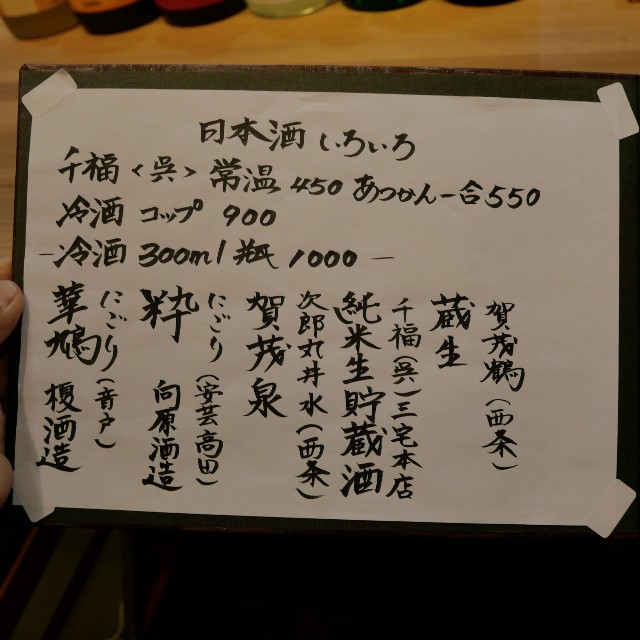 日本酒 いろいろ
千福<呉> 常温 450 あつかん一合550
冷酒 コップ 900
-冷酒 300ml瓶 1000-
賀茂鶴(西条)
蔵生
千福(呉)三宅本店
純米生貯蔵酒
次郎丸井水(西条)
賀茂泉
にごり(安芸高田)
粋 向原酒造
にごり(音戸)
華鳩 榎酒造